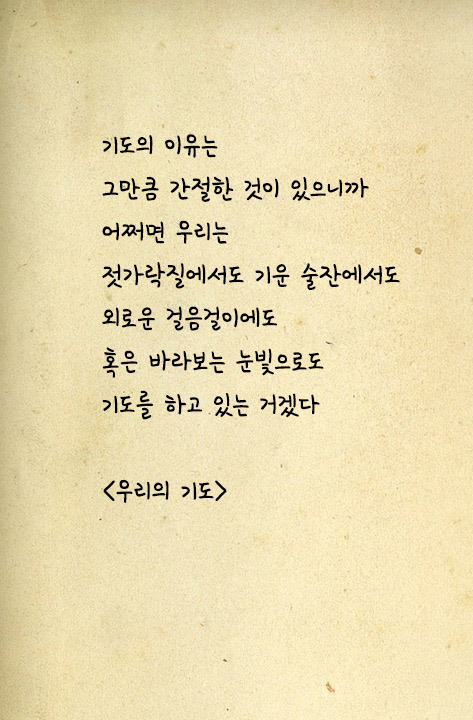 기도의 이유는
그만큼 간절한 것이 있으니까
어쩌면 우리는
젓가락질에서도 기운 술잔에서도
외로운 걸음걸이에도
혹은 바라보는 눈빛으로도
기도를 하고 있는 거겠다
<우리의 기도>